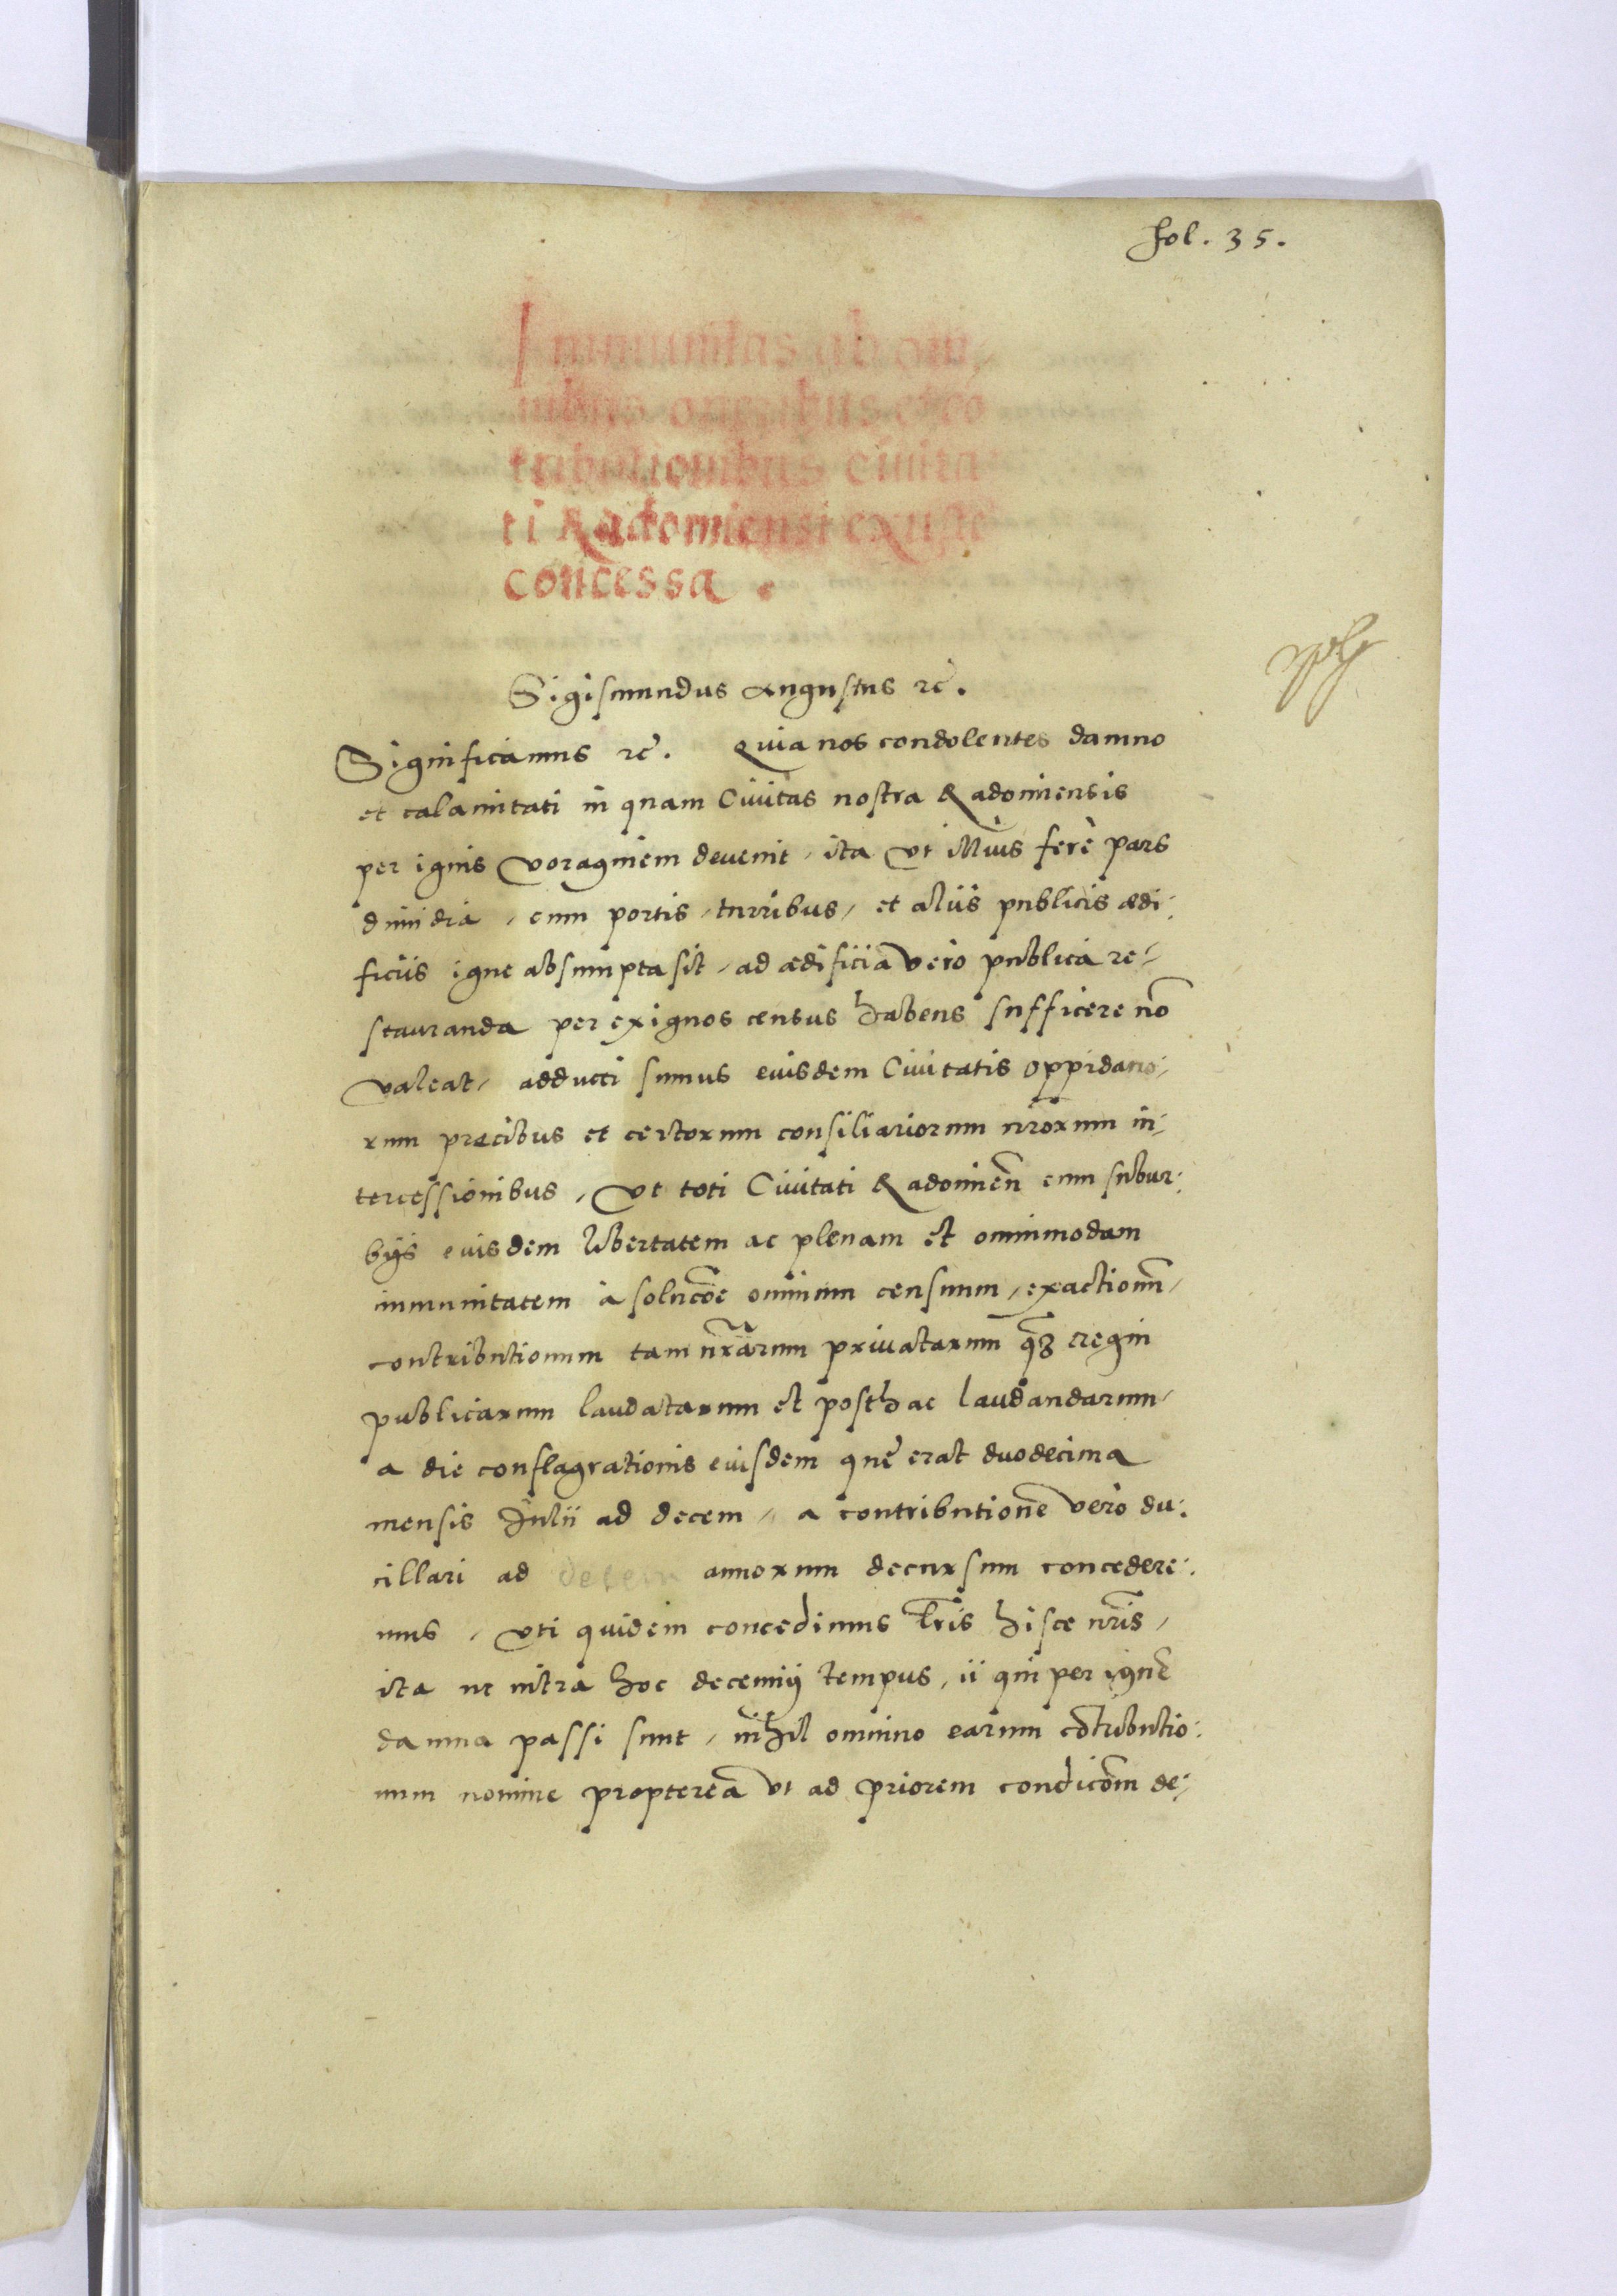 fol. 35.
Immunitas ab om,
nibus oneribus et co
tributionibus ciuita
ti Radomiensi exuste
concessa.
Sigismundus Augustus rc̃.
Significamus rc̃. Quia nos condolentes damno
et calamitati in quam Ciuitas nostra Radomiensis
per ignis voraginem deuenit, ita vt illius ferè pars
dimidia, cum portis, turribus, et aliis publicis ædi,
ficiis igne absumpta sit, ad ædificia vero publica re,
stauranda per exiguos census habens sufficere nõ
valeat, adducti sumus eiusdem Ciuitatis oppidano,
rum precibus et certorum consiliariorum nr̃orum in,
tercessionibus, vt toti Ciuitati Radomien̄ cum subur,
bijs eiusdem libertatem ac plenam et omnimodam
immunitatem à solucõe omnium censuum, exactionũ,
contributionum tam nr̃arum priuatarum q̃ȝ regni
publicarum laudatarum et posthac laudandarum,
a die conflagrationis eiusdem quę erat duodecima
mensis Julii ad decem, a contributione vero du,
cillari ad decem annorum decursum concedere,
mus, vti quidem concedimus l̃ris hisce nr̃is,
ita ut intra hoc decennij tempus, ii qui per ignẽ
damna passi sunt, nihil omnino earum cõtributio,
num nomine propterea vt ad priorem condicõm de,